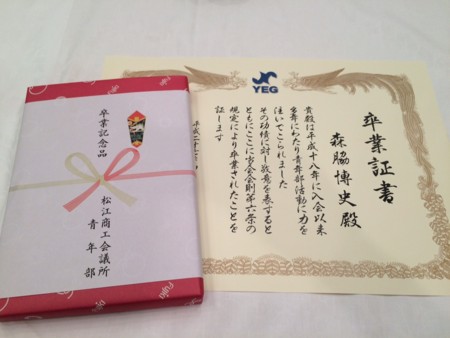 YEG
卒業証書
森脇博史殿
貴殿は平成十八年に入会以来
多年にわたり青年部活動に力を
注いでこられました
その功績に対し敬意を表すると
ともにここに当会会則第六条の
規定により卒業されたことを
証します
平成二十
卒業記念品
松江商工会議所
青年部